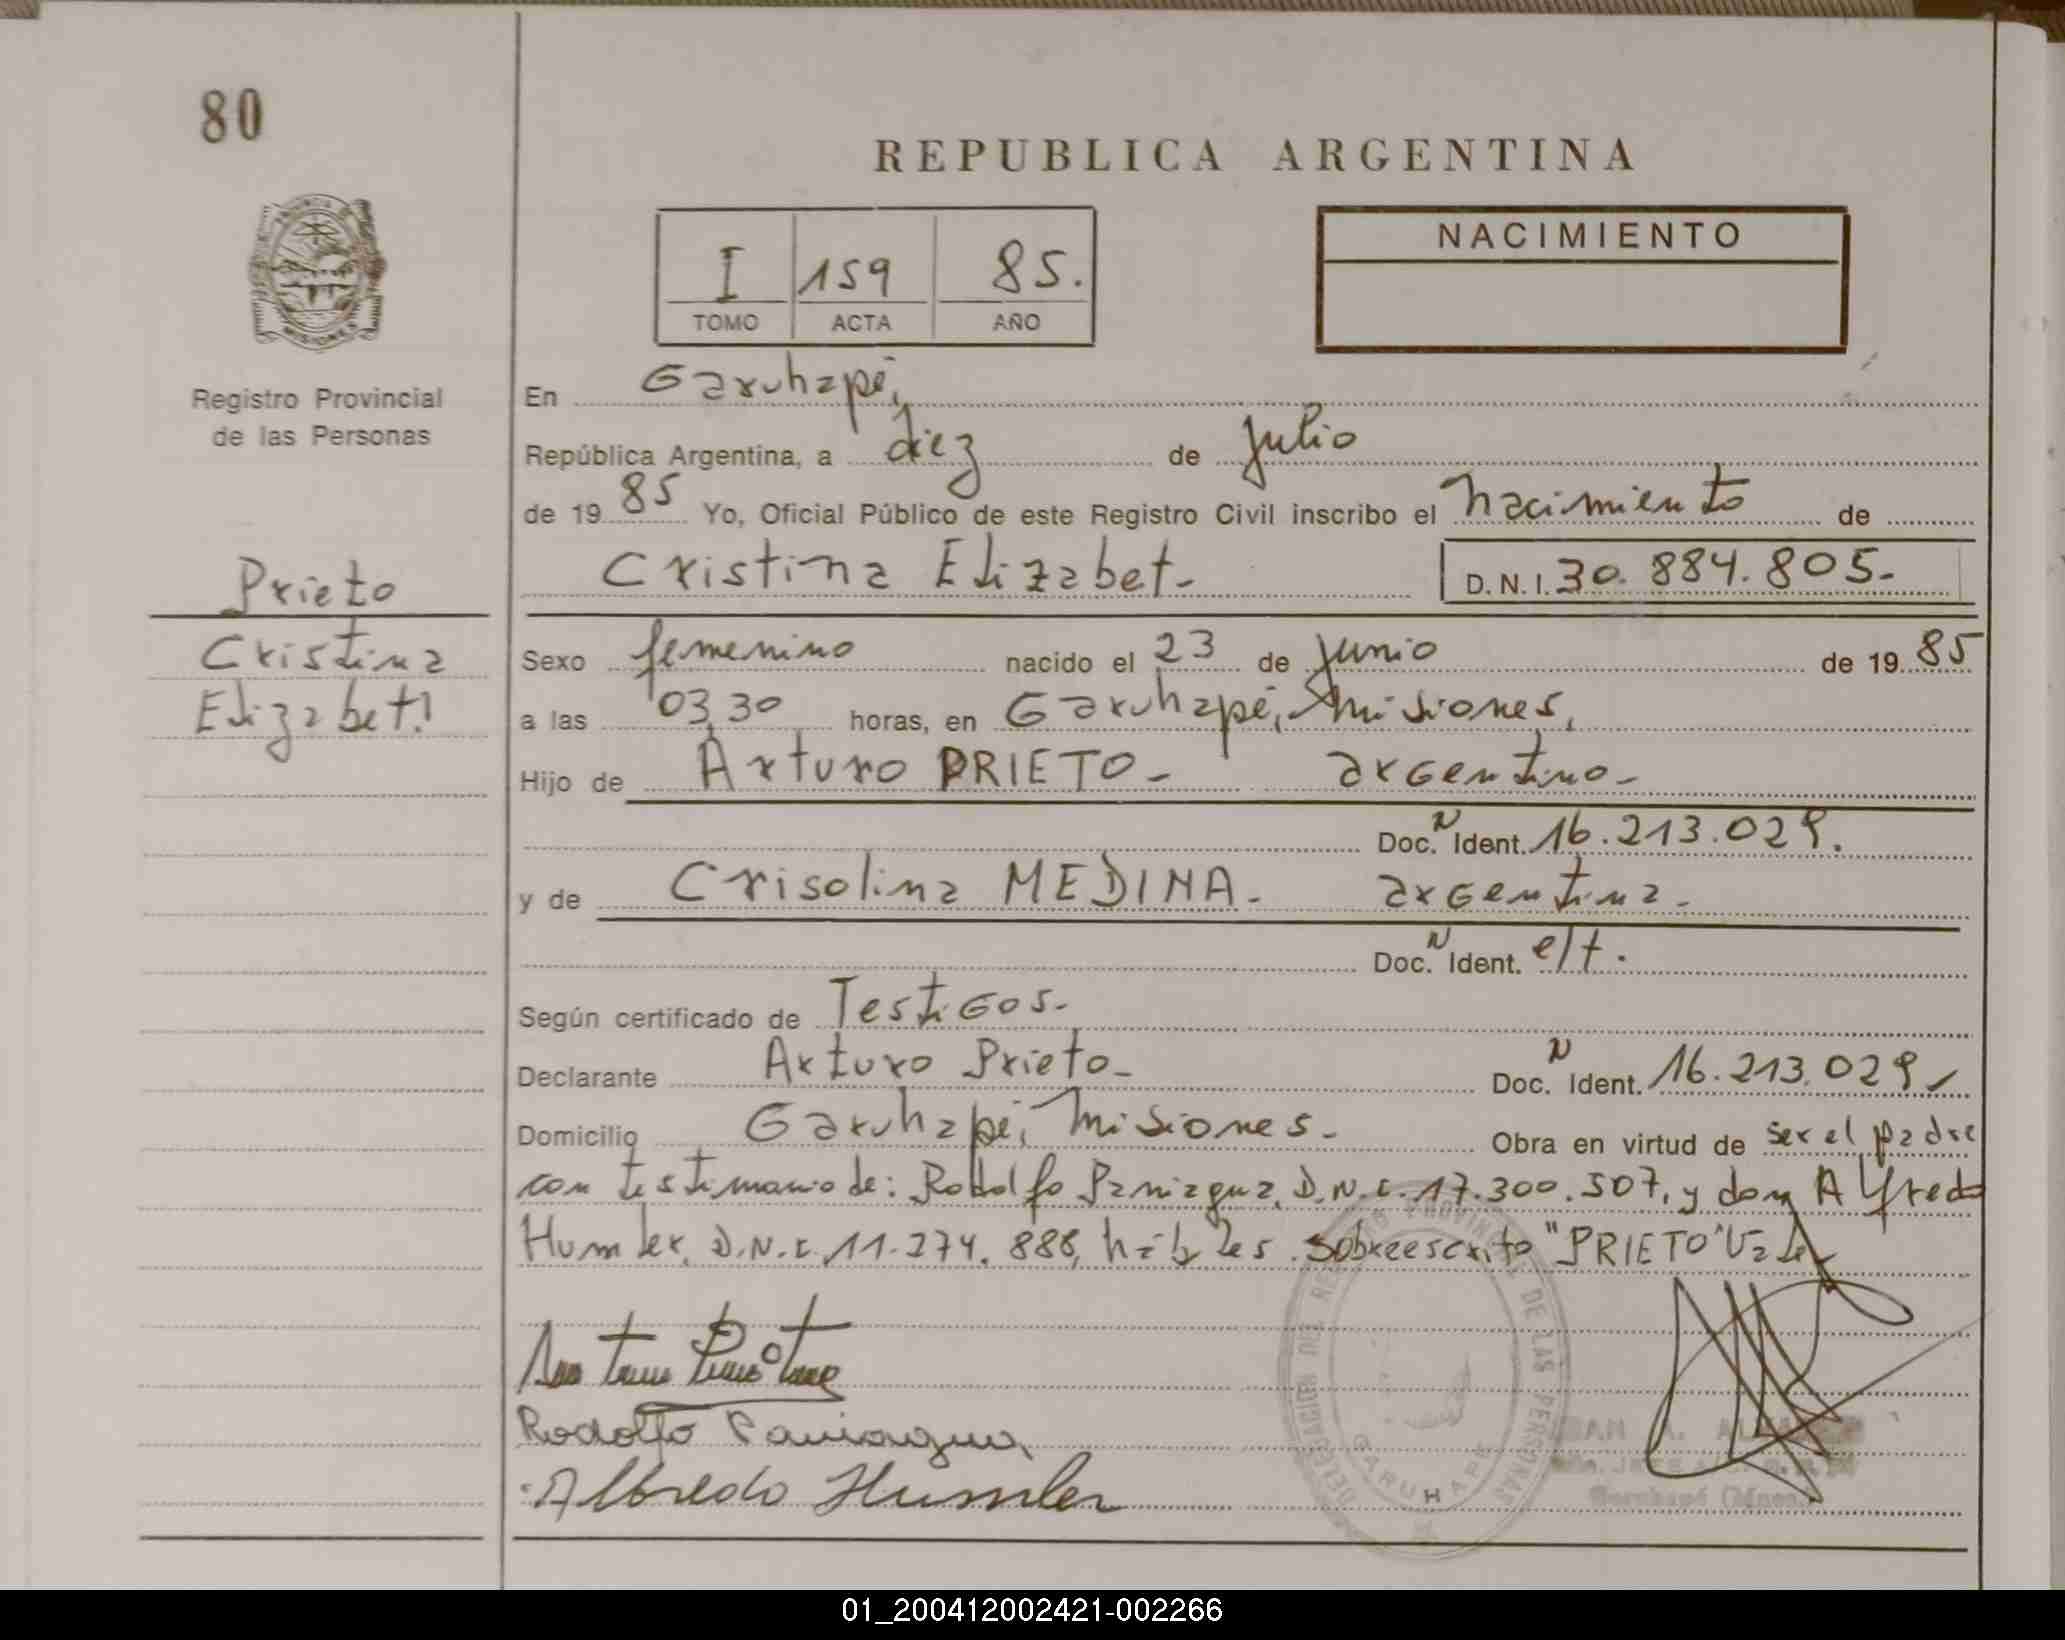 80
REPUBLICA ARGENTINA
NACIMIENTO
I 159 85.
TOMO ACTA AÑO
Registro Provincial
de las Personas
Prieto
Cristina
Elizabet.
En Garuhapé,
República Argentina, a diez de julio
de 19 85 Yo, Oficial Público de este Registro Civil inscribo el nacimiento de
Cristina Elizabet- D.N.I. 30.884.805-
Sexo femenino nacido el 23 de junio de 19 85
a las 03,30 horas, en Garuhapé, Misiones,
Hijo de Arturo PRIETO- argentino-
Doc. N Ident. 16.213.029.
y de Crisolina MEDINA- argentina-
Doc. N Ident. e/t.
Según certificado de Testigos-
Declarante Arturo Prieto- Doc. N Ident. 16.213.029
Domicilio Garuhapé, Misiones- Obra en virtud de ser el padre
con testimonio de: Rodolfo Paniagua, D.N.I. 17.300.507, y don Alfredo
Humler, D.N.I. 11.274.888, hábiles. Sobreescrito "PRIETO" Vale
Rodolfo Paniagua
Alfredo Humler
DELEGACION DEL REGISTRO PROVINCIAL DE LAS PERSONAS
GARUHAPE
Garuhapé (Mnes.)
01_200412002421-002266